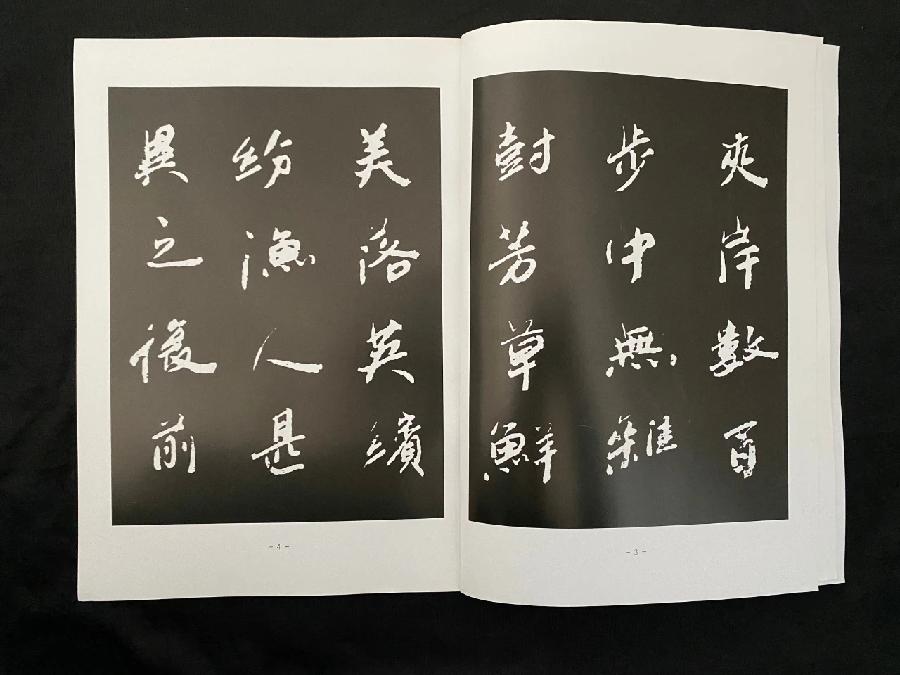 夾岸數百
步中無雜
尌芳草鮮
- 3 -
美落英繽
紛漁人甚
異之復前
- 4 -